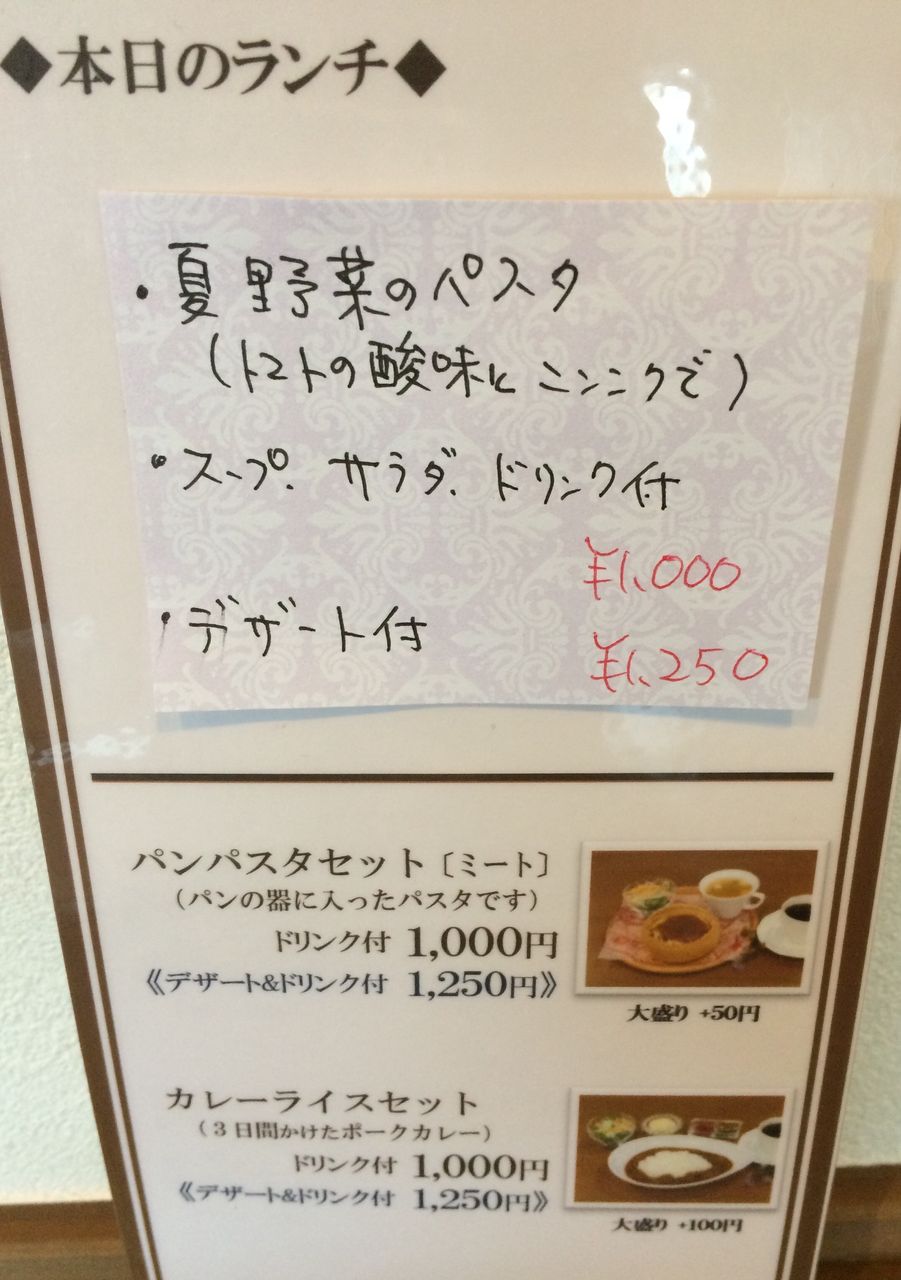 ◆本日のランチ◆
・夏野菜のパスタ
(トマトの酸味にニンニクで)
・スープ、サラダ、ドリンク付
¥1,000
・デザート付
¥1,250
パンパスタセット〔ミート〕
(パンの器に入ったパスタです)
ドリンク付 1,000円
《デザート&ドリンク付 1,250円》
大盛り +50円
カレーライスセット
(3日間かけたポークカレー)
ドリンク付 1,000円
《デザート&ドリンク付 1,250円》
大盛り +100円